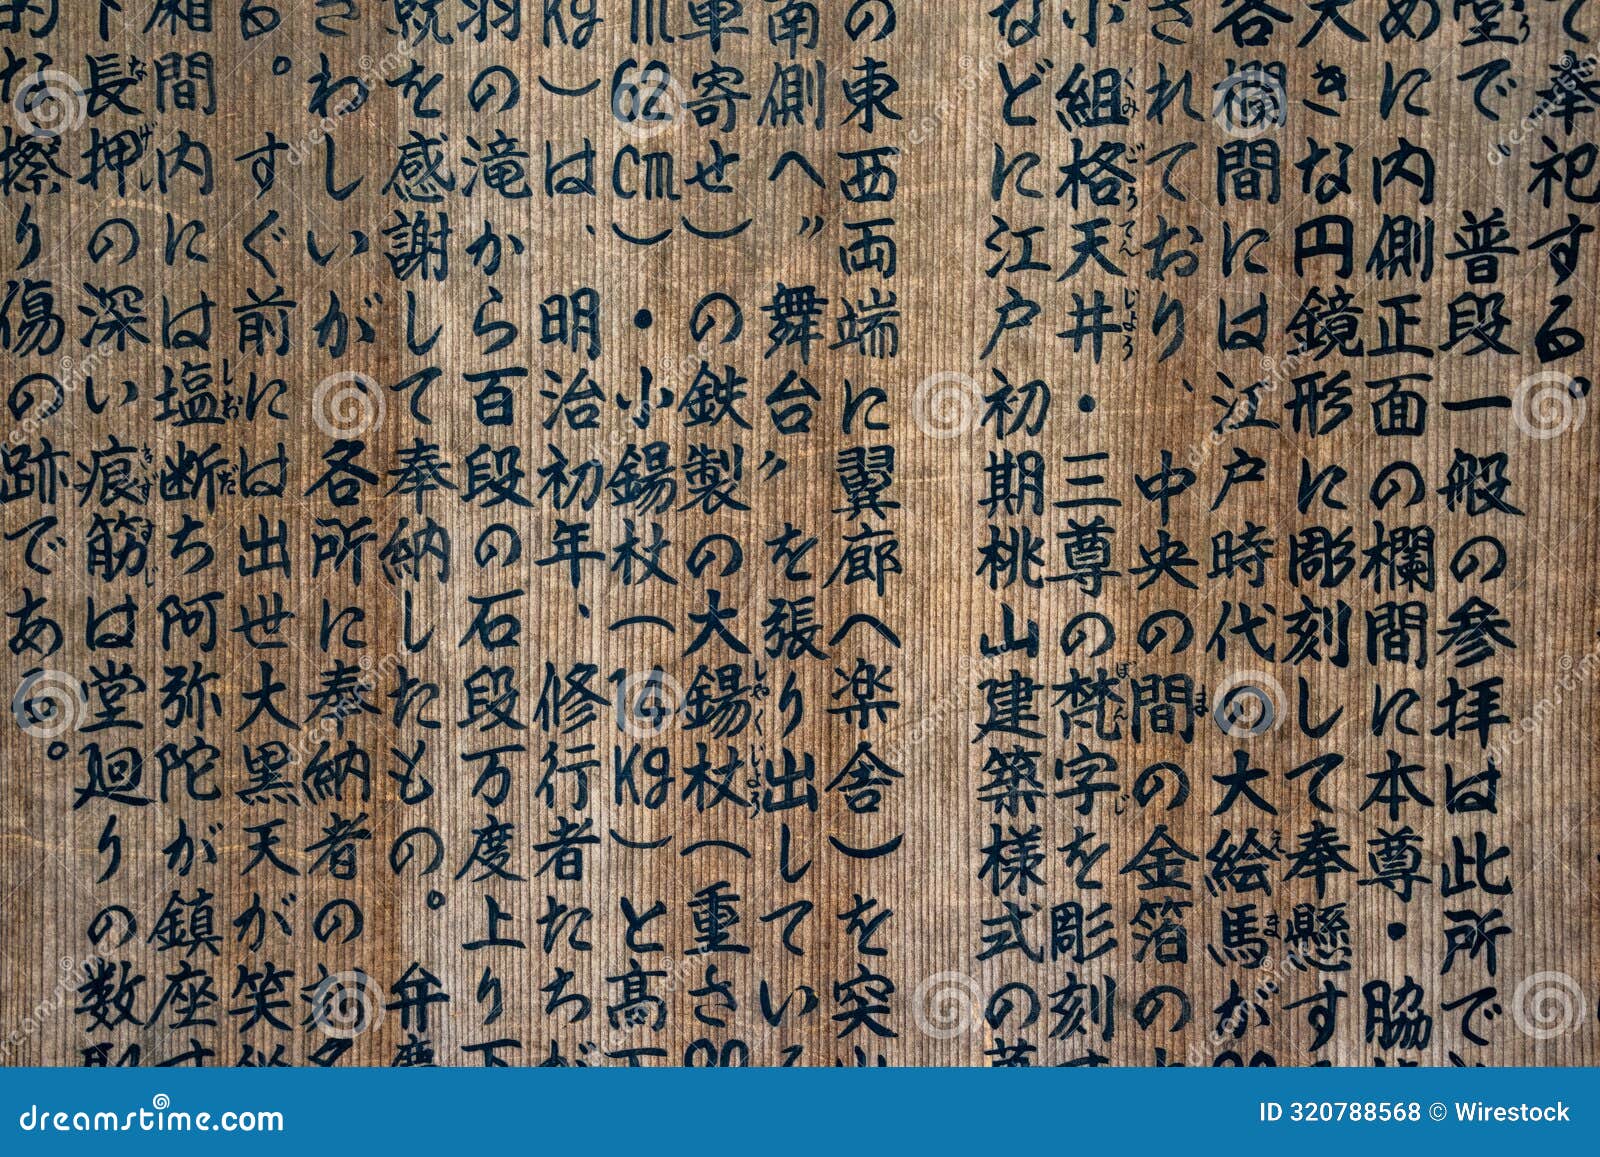 て奉祀する。
堂で 普段一般の参拝は此所で
めに内側正面の欄間に本尊・脇
大きな円鏡形に彫刻して奉懸す
各欄間には江戸時代の大絵馬が
されており、中央の間の金箔の
小組格天井・三尊の梵字を彫刻
などに江戸初期桃山建築様式の
の東西両端に翼廊へ楽舎)を突
南側へ〝舞台〟を張り出してい
車寄せ)の鉄製の大錫杖(重さ90
m62cm)・小錫杖(14kg)と高下
kg)は、明治初年、修行者たちが
羽の滝から百段の石段万度上り下
就を感謝して奉納したもの。弁慶
さわしいが、各所に奉納者の刻名
る。すぐ前には出世大黒天が笑
廂間内には塩断ち阿弥陀が鎮座す
下長押の深い痕筋は堂廻りの数
的な擦り傷の跡である。
dreamstime.com
ID 320788568 © Wirestock